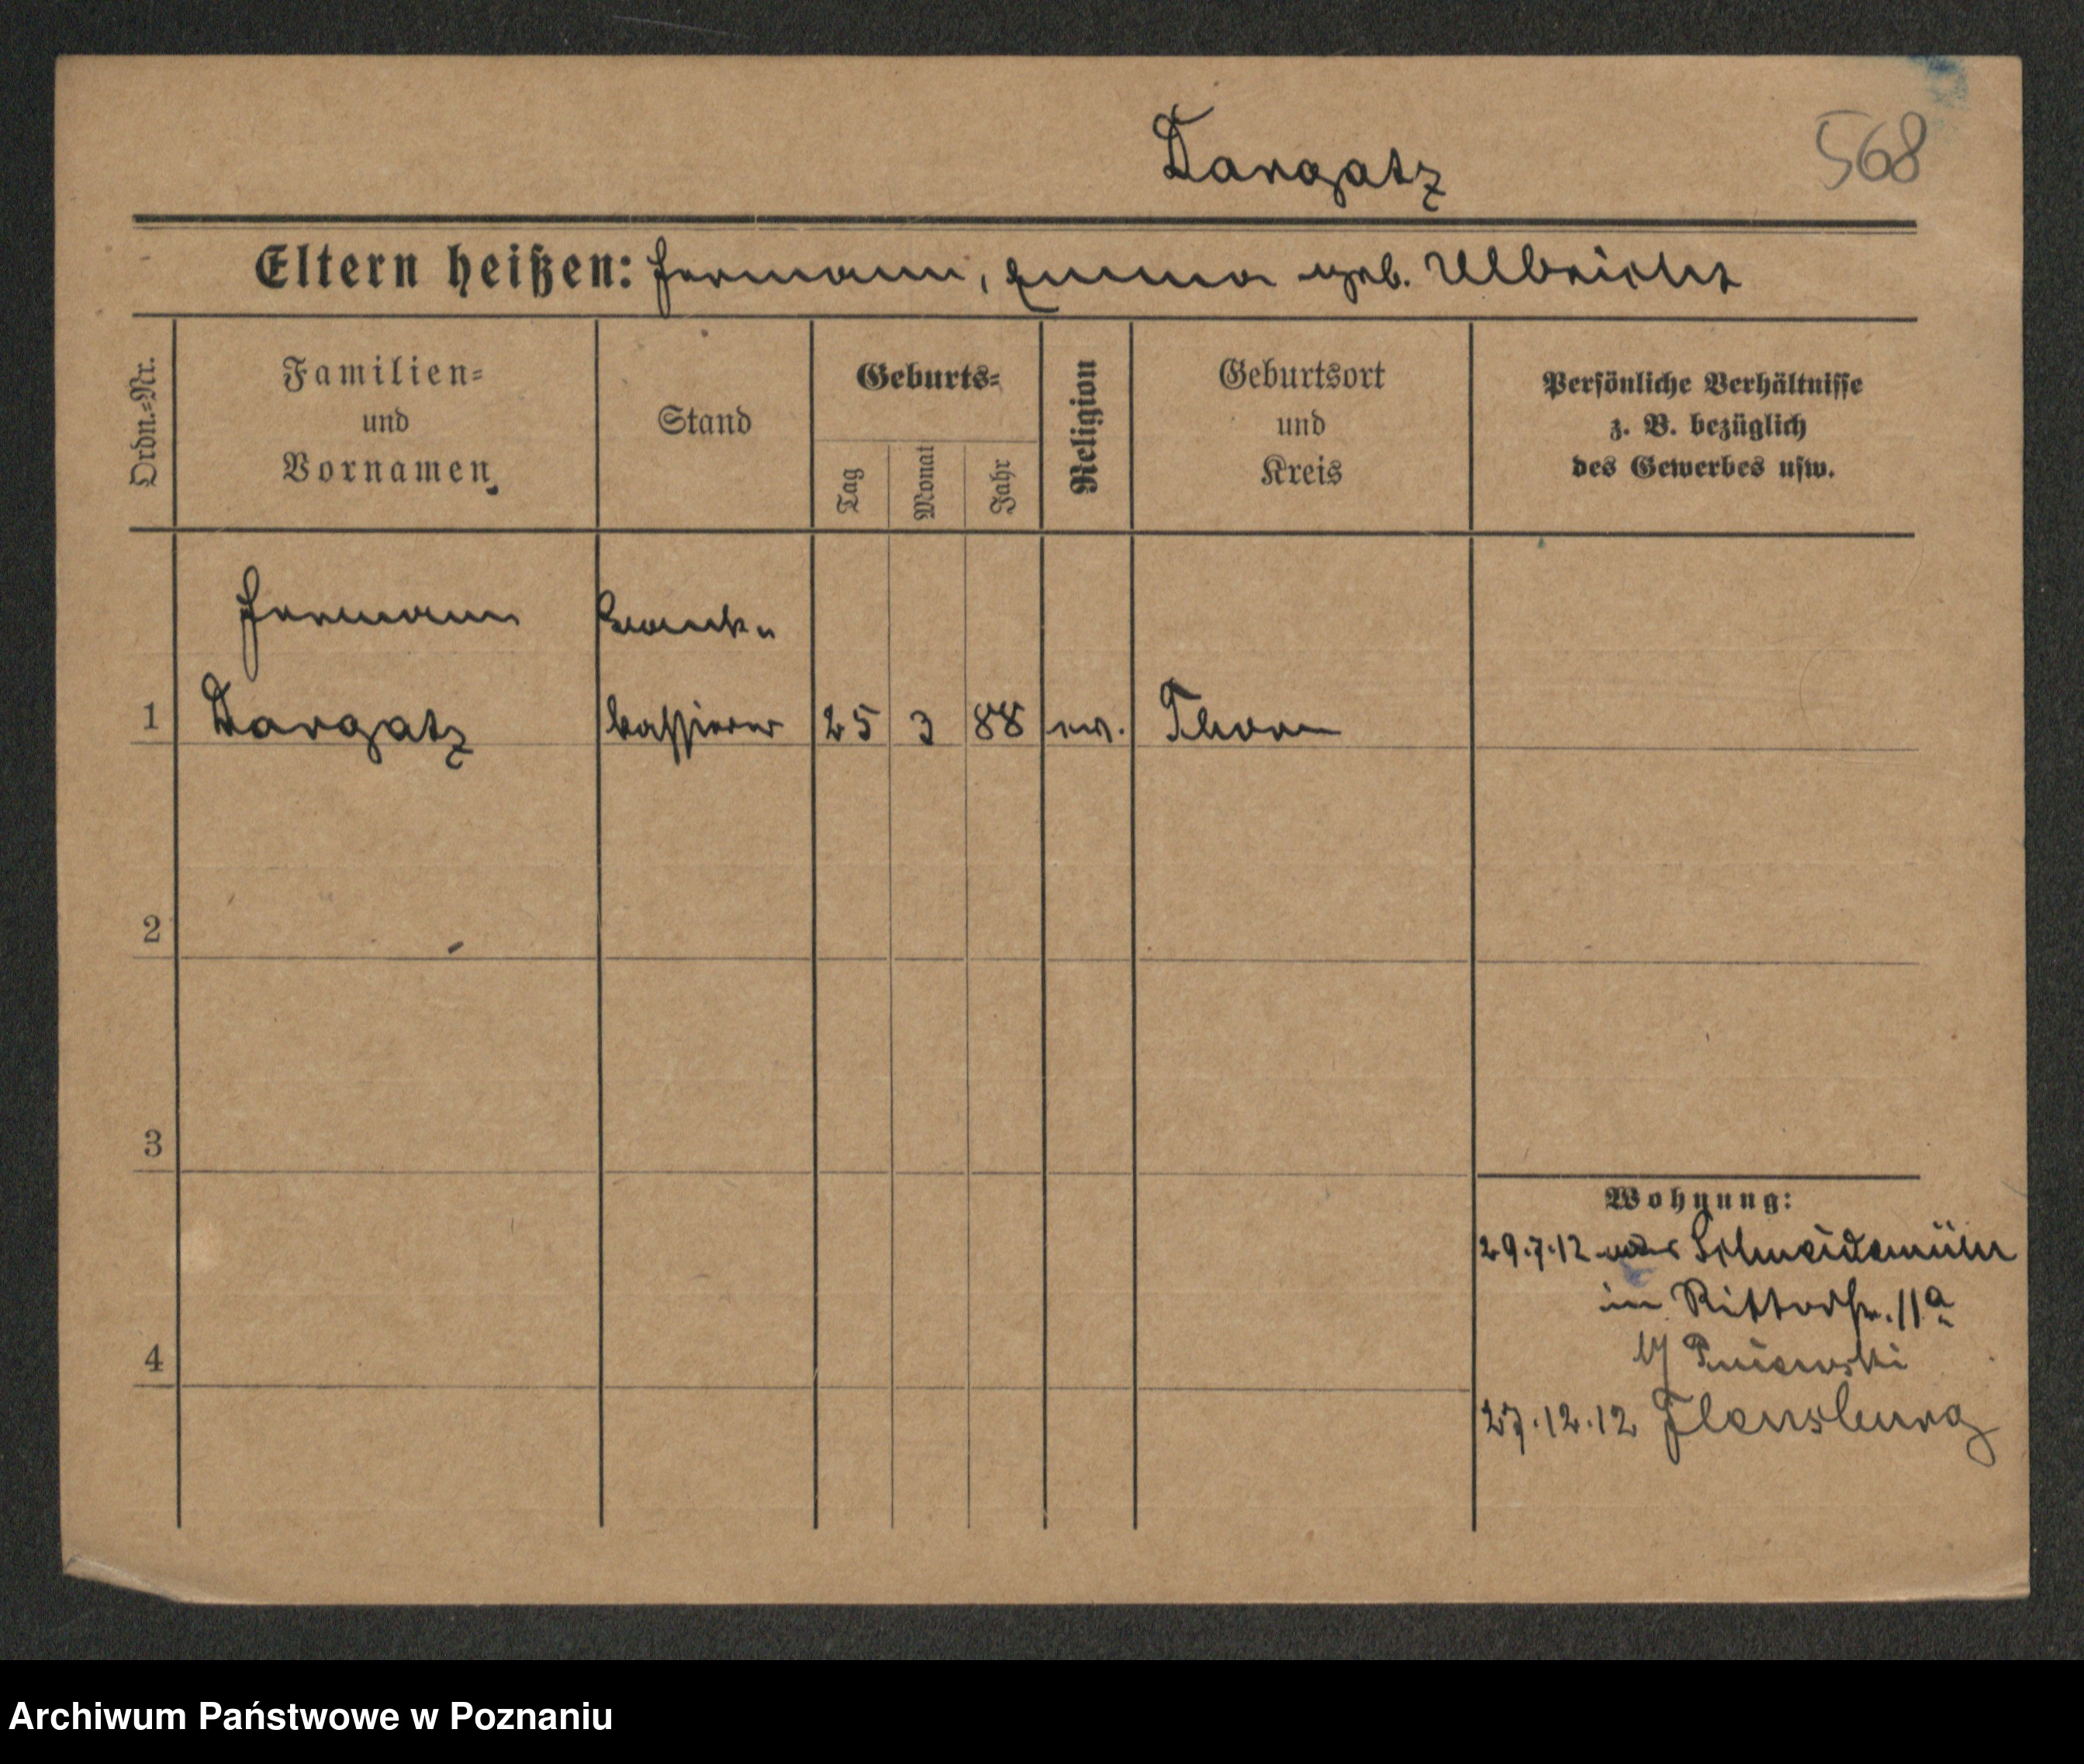 Dargatz
568
Eltern heißen: Hermann, Emma geb. Ulbricht
Ordn.=Nr.
Familien=
und
Vornamen
Stand
Geburts=
Tag
Monat
Jahr
Religion
Geburtsort
und
Kreis
Persönliche Verhältnisse
z. B. bezüglich
des Gewerbes usw.
Hermann Bank-
1 Dargatz kassierer 25 3 88 ev. Thorn
2
3
4
Wohnung:
29.7.12 Schneidemühl
in Ritterstr. 11a
b/ Pniewski
27.12.12 Flensburg
Archiwum Państwowe w Poznaniu